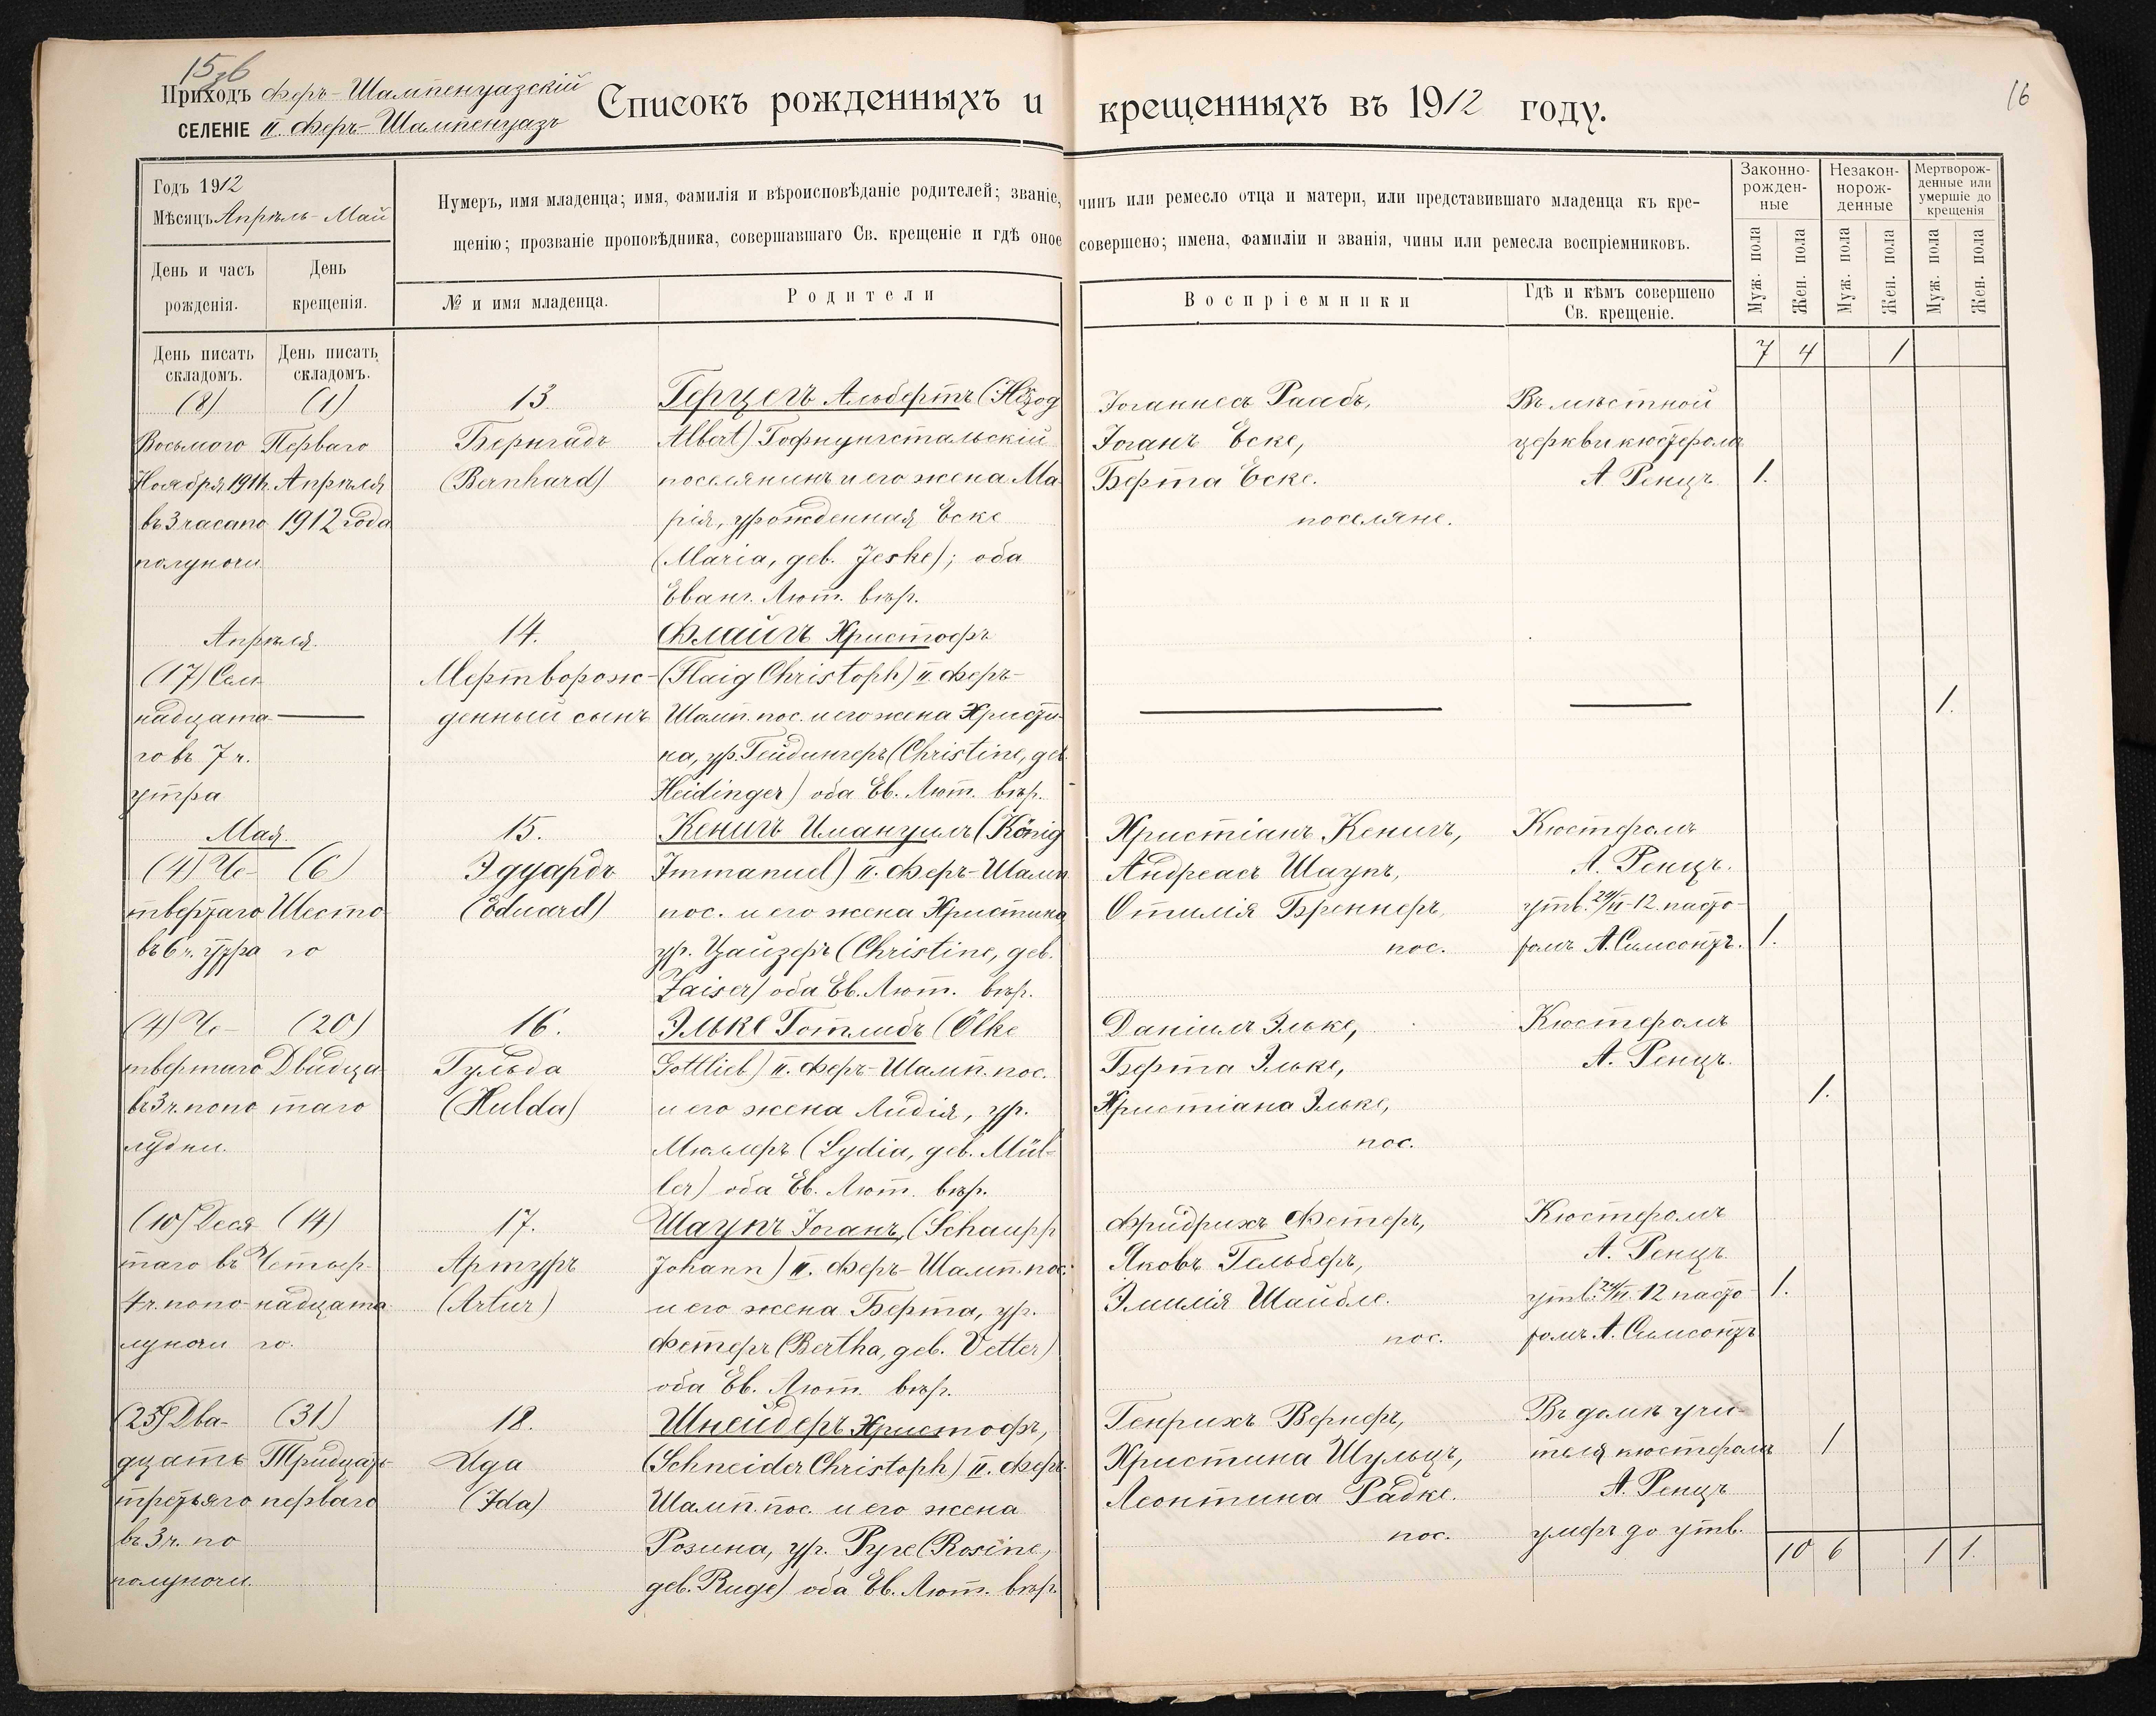 15 зб
Приходъ Феръ-Шампенуазскій
СЕЛЕНІЕ II. Феръ-Шампенуазъ
Списокъ рожденныхъ и крещенныхъ въ 1912 году.
16
Годъ 1912
Мѣсяцъ Апрѣль-Май
Нумеръ, имя младенца; имя, фамилія и вѣроисповѣданіе родителей; званіе, чинъ или ремесло отца и матери, или представившаго младенца къ кре-
щенію; прозваніе проповѣдника, совершавшаго Св. крещеніе и гдѣ оное совершено; имена, фамиліи и званія, чины или ремесла воспріемниковъ.
Законно-
рожден-
ные
Незакон-
норож-
денные
Мертворож-
денные или
умершіе до
крещенія
День и часъ
рожденія.
День
крещенія.
№ и имя младенца.
Родители
Воспріемники
Гдѣ и кѣмъ совершено
Св. крещеніе.
Муж. пола
Жен. пола
Муж. пола
Жен. пола
Муж. пола
Жен. пола
День писать
складомъ.
День писать
складомъ.
7 4 1
(8)
Восьмого
Ноября 1911г.
въ 3 часа по
полуночи
(1)
Перваго
Апрѣля
1912 года
13
Бернгадъ
(Bernhard)
Герцегъ Альбертъ (Herzog
Albert) Гофнунгстальскій
поселянинъ и его жена Ма-
рія, урожденная Еске
(Maria, geb. Jeske); оба
Еванг. Лют. вѣр.
Іоганнесъ Раабъ,
Іоганъ Еске,
Берта Еске.
поселяне.
Въ мѣстной
церкви кюстеромъ
А. Ренцъ
1.
Апрѣля
(17) Сем-
надцата-
го въ 7 ч.
утра
14.
Мертворож-
денный сынъ
Флайгъ Христофъ
(Flaig Christoph) II. Феръ-
Шамп. пос. и его жена Христи-
на, ур. Гейдингеръ (Christine, geb.
Heidinger) оба Ев. Лют. вѣр.
1.
Мая
(4) Че-
твертаго
въ 6 ч. утра
(6)
Шесто
го
15.
Эдуардъ
(Eduard)
Кенигъ Имануилъ (König
Immanuel) II. Феръ-Шамп
пос. и его жена Христина
ур. Цайзеръ (Christine, geb.
Zaiser) оба Ев. Лют. вѣр.
Христіанъ Кенигъ,
Андреасъ Шаупъ,
Отилія Бреннеръ,
пос.
Кюстеромъ
А. Ренцъ.
утв. 24/VI-12. пасто-
ромъ А. Симсонъ.
1.
(4) Че-
твертаго
въ 3 ч. попо
лудни.
(20)
Двадца
таго
16.
Гульда
(Hulda)
Эльке Готлибъ (Ölke
Gottlieb) II. Феръ-Шамп. пос.
и его жена Лидія, ур.
Мюллеръ (Lydia, geb. Mül-
ler) оба Ев. Лют. вѣр.
Даніилъ Эльке,
Берта Эльке,
Христіана Эльке,
пос.
Кюстеромъ
А. Ренцъ.
1.
(10) Деся
таго въ
4 ч. попо-
луночи
(14)
Четыр-
надцата
го.
17.
Артуръ
(Artur)
Шаупъ Іоганъ, (Schaupp
Johann) II. Феръ-Шамп. пос.
и его жена Берта, ур.
Фетеръ (Bertha, geb. Vetter)
оба Ев. Лют. вѣр.
Фридрихъ Фетеръ,
Яковъ Гельберъ,
Эмилія Шайбле.
пос.
Кюстеромъ
А. Ренцъ.
утв. 24/VI. 12 пасто-
ромъ А. Симсонъ
1.
(23) Два-
дцать
третьяго
въ 3 ч. по
полуночи.
(31)
Тридцать
перваго
18.
Ида
(Ida)
Шнейдеръ Христофъ,
(Schneider Christoph) II. Феръ-
Шамп. пос. и его жена
Розина, ур. Руге (Rosine,
geb. Ruge) оба Ев. Лют. вѣр.
Генрихъ Вернеръ,
Христина Шульцъ,
Леонтина Радке.
пос.
Въ домѣ учи-
теля кюстеромъ
А. Ренцъ
умеръ до утв.
1
10 6 1 1.